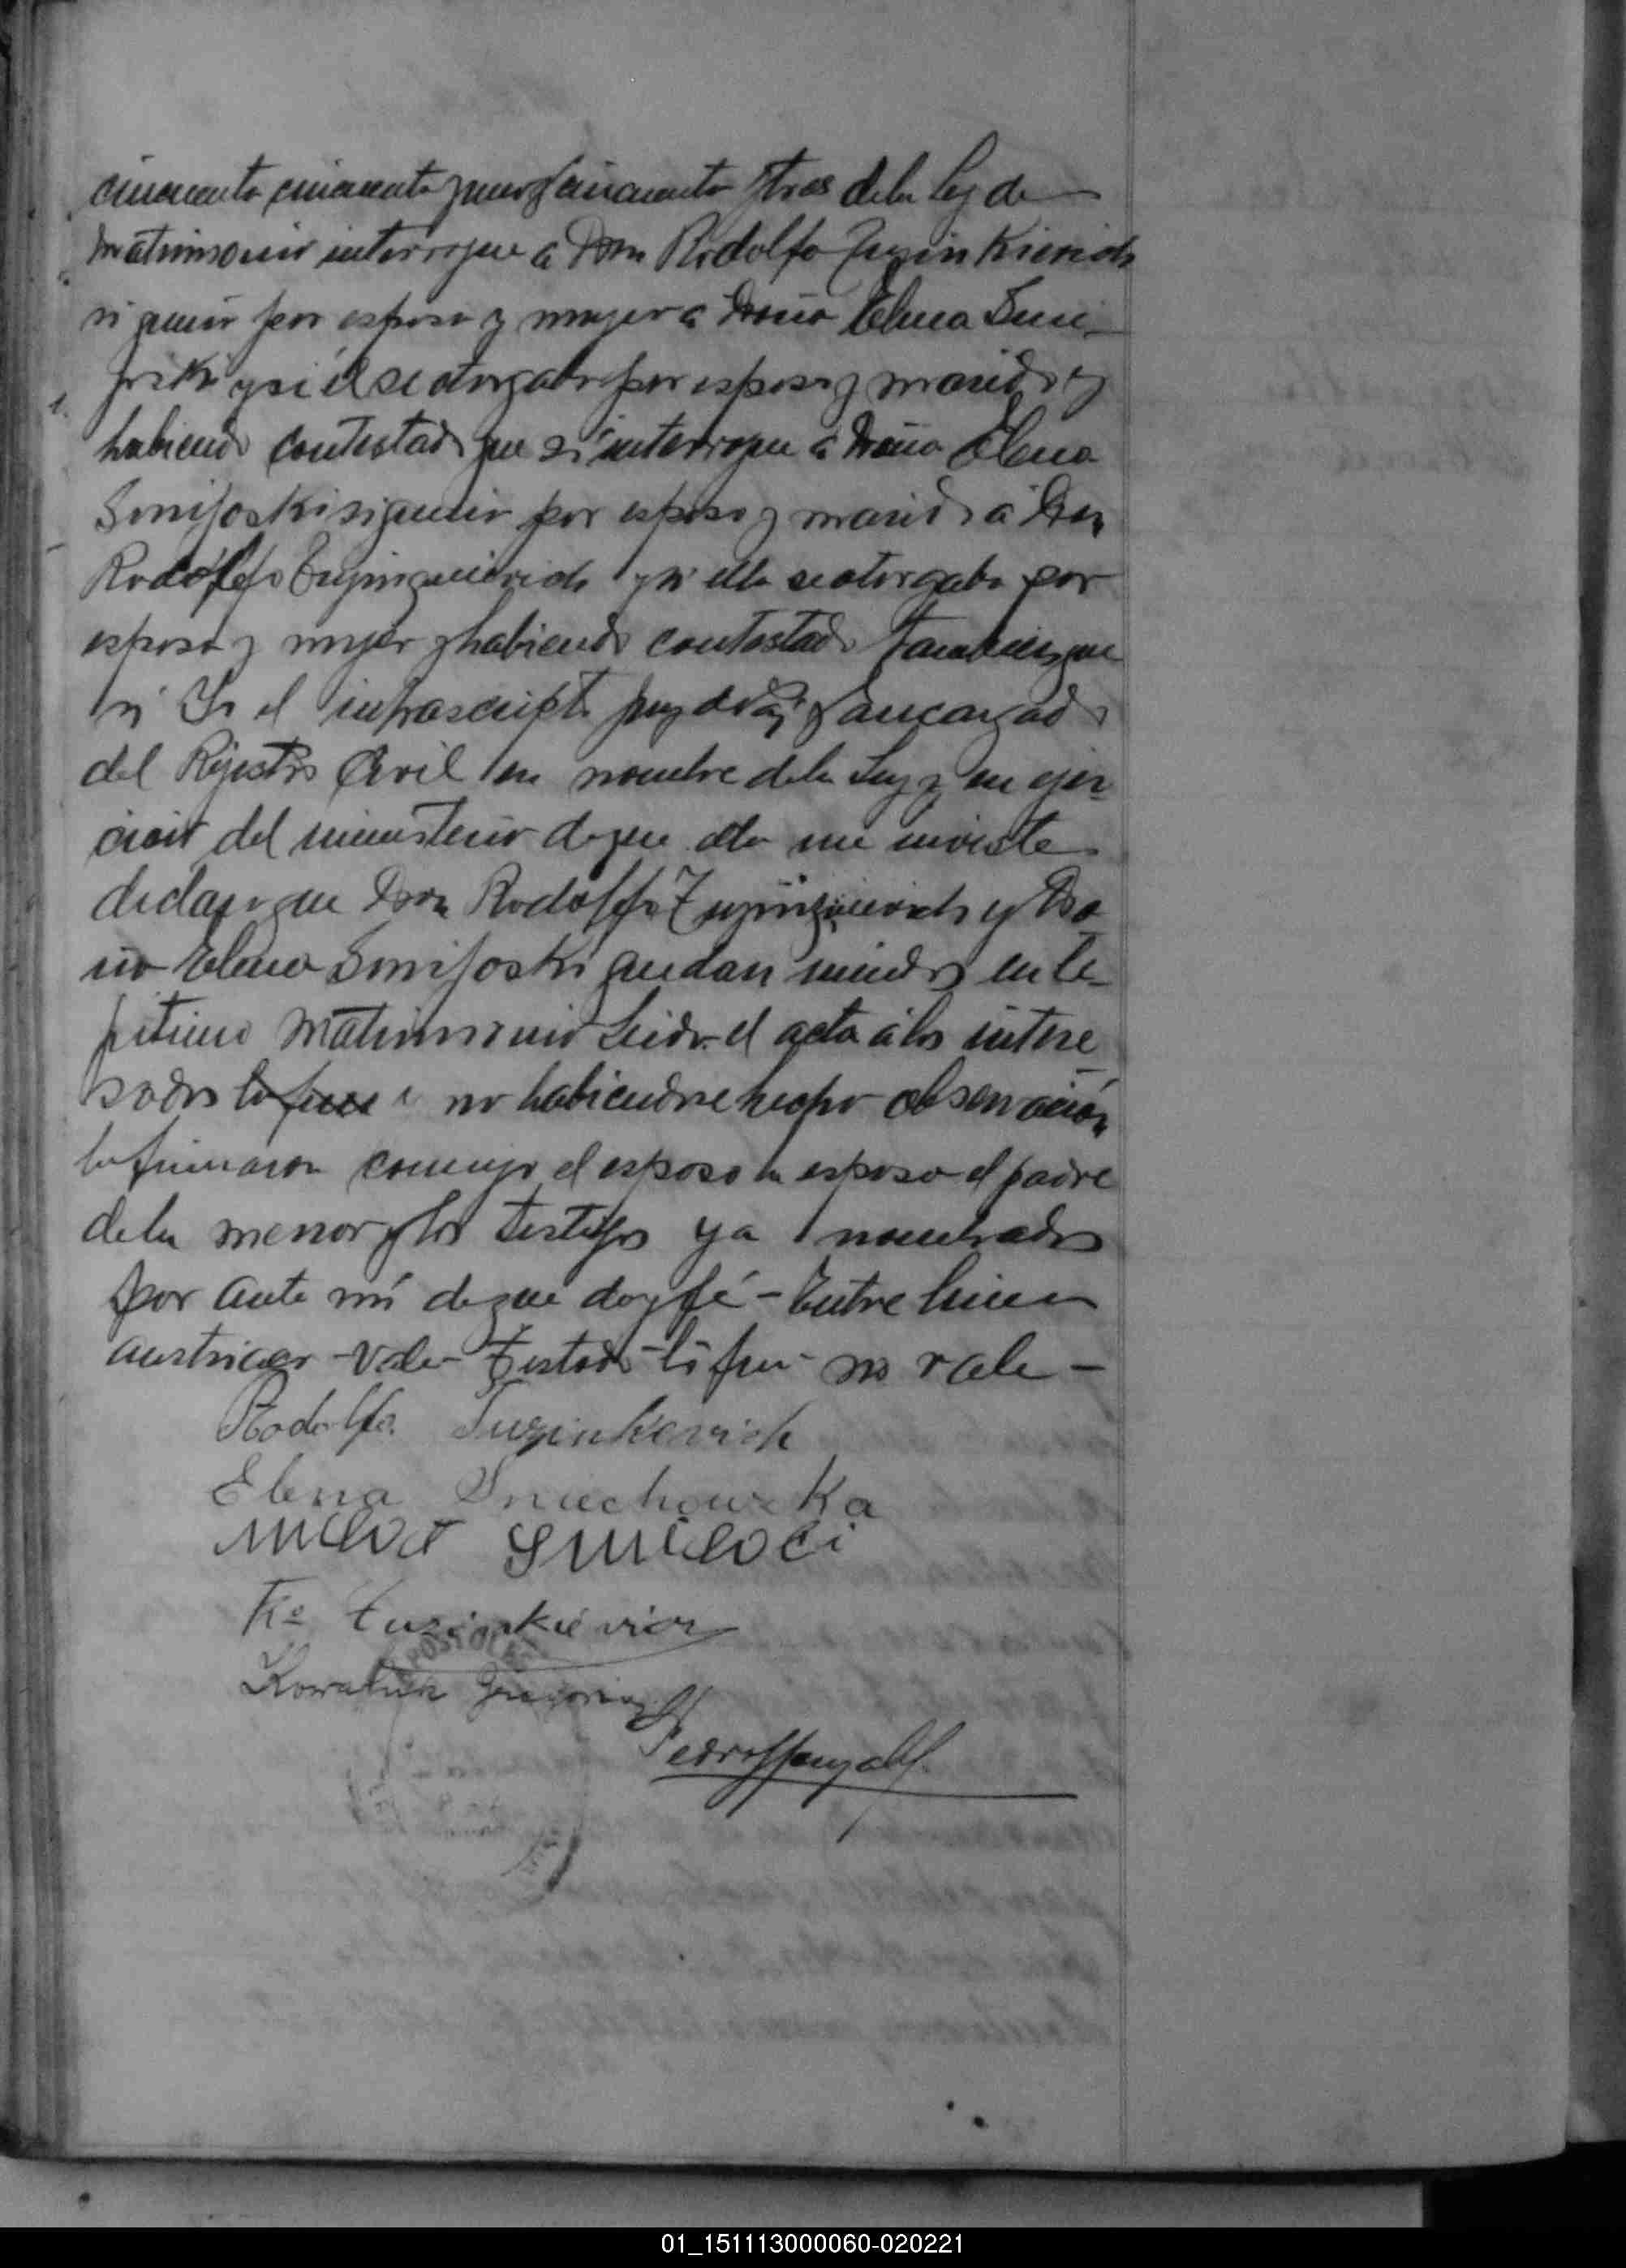 cincuenta cincuenta y uno y cincuenta y tres dela Ley de
Matrimonio interrogue a Don Rodolfo Tuzinkievich
si queria por esposa y mujer a Doña Elena Smi-
joski y si él se otorgaba por esposo y marido y
habiendo contestado que sí interrogue á Doña Elena
Smijoski si queria por esposo y marido á Don
Rodolfo y si ella se otorgaba por
esposa y mujer y habiendo contestado tambien que
si Yo el infrascripto Juez de Paz y encargado
del Rejistro Civil en nombre dela Ley y en ejer-
cicio del ministerio de que ella me inviste
declaro que Don Rodolfo y Do-
ña Elena Smijoski quedan unidos en le-
jitimo Matrimonio Leida el acta á los intere-
sados no habiendose hecho observación
la firmaron conmigo el esposo la esposa el padre
dela menor y los testigos ya nombrados
por ante mí de que doy fé - Entre linea
austriaco - Vale - Testado - la fir - no vale -
Rodolfo Tuzinkievich
Elena Smiechowska
K. Tuzinkievicz